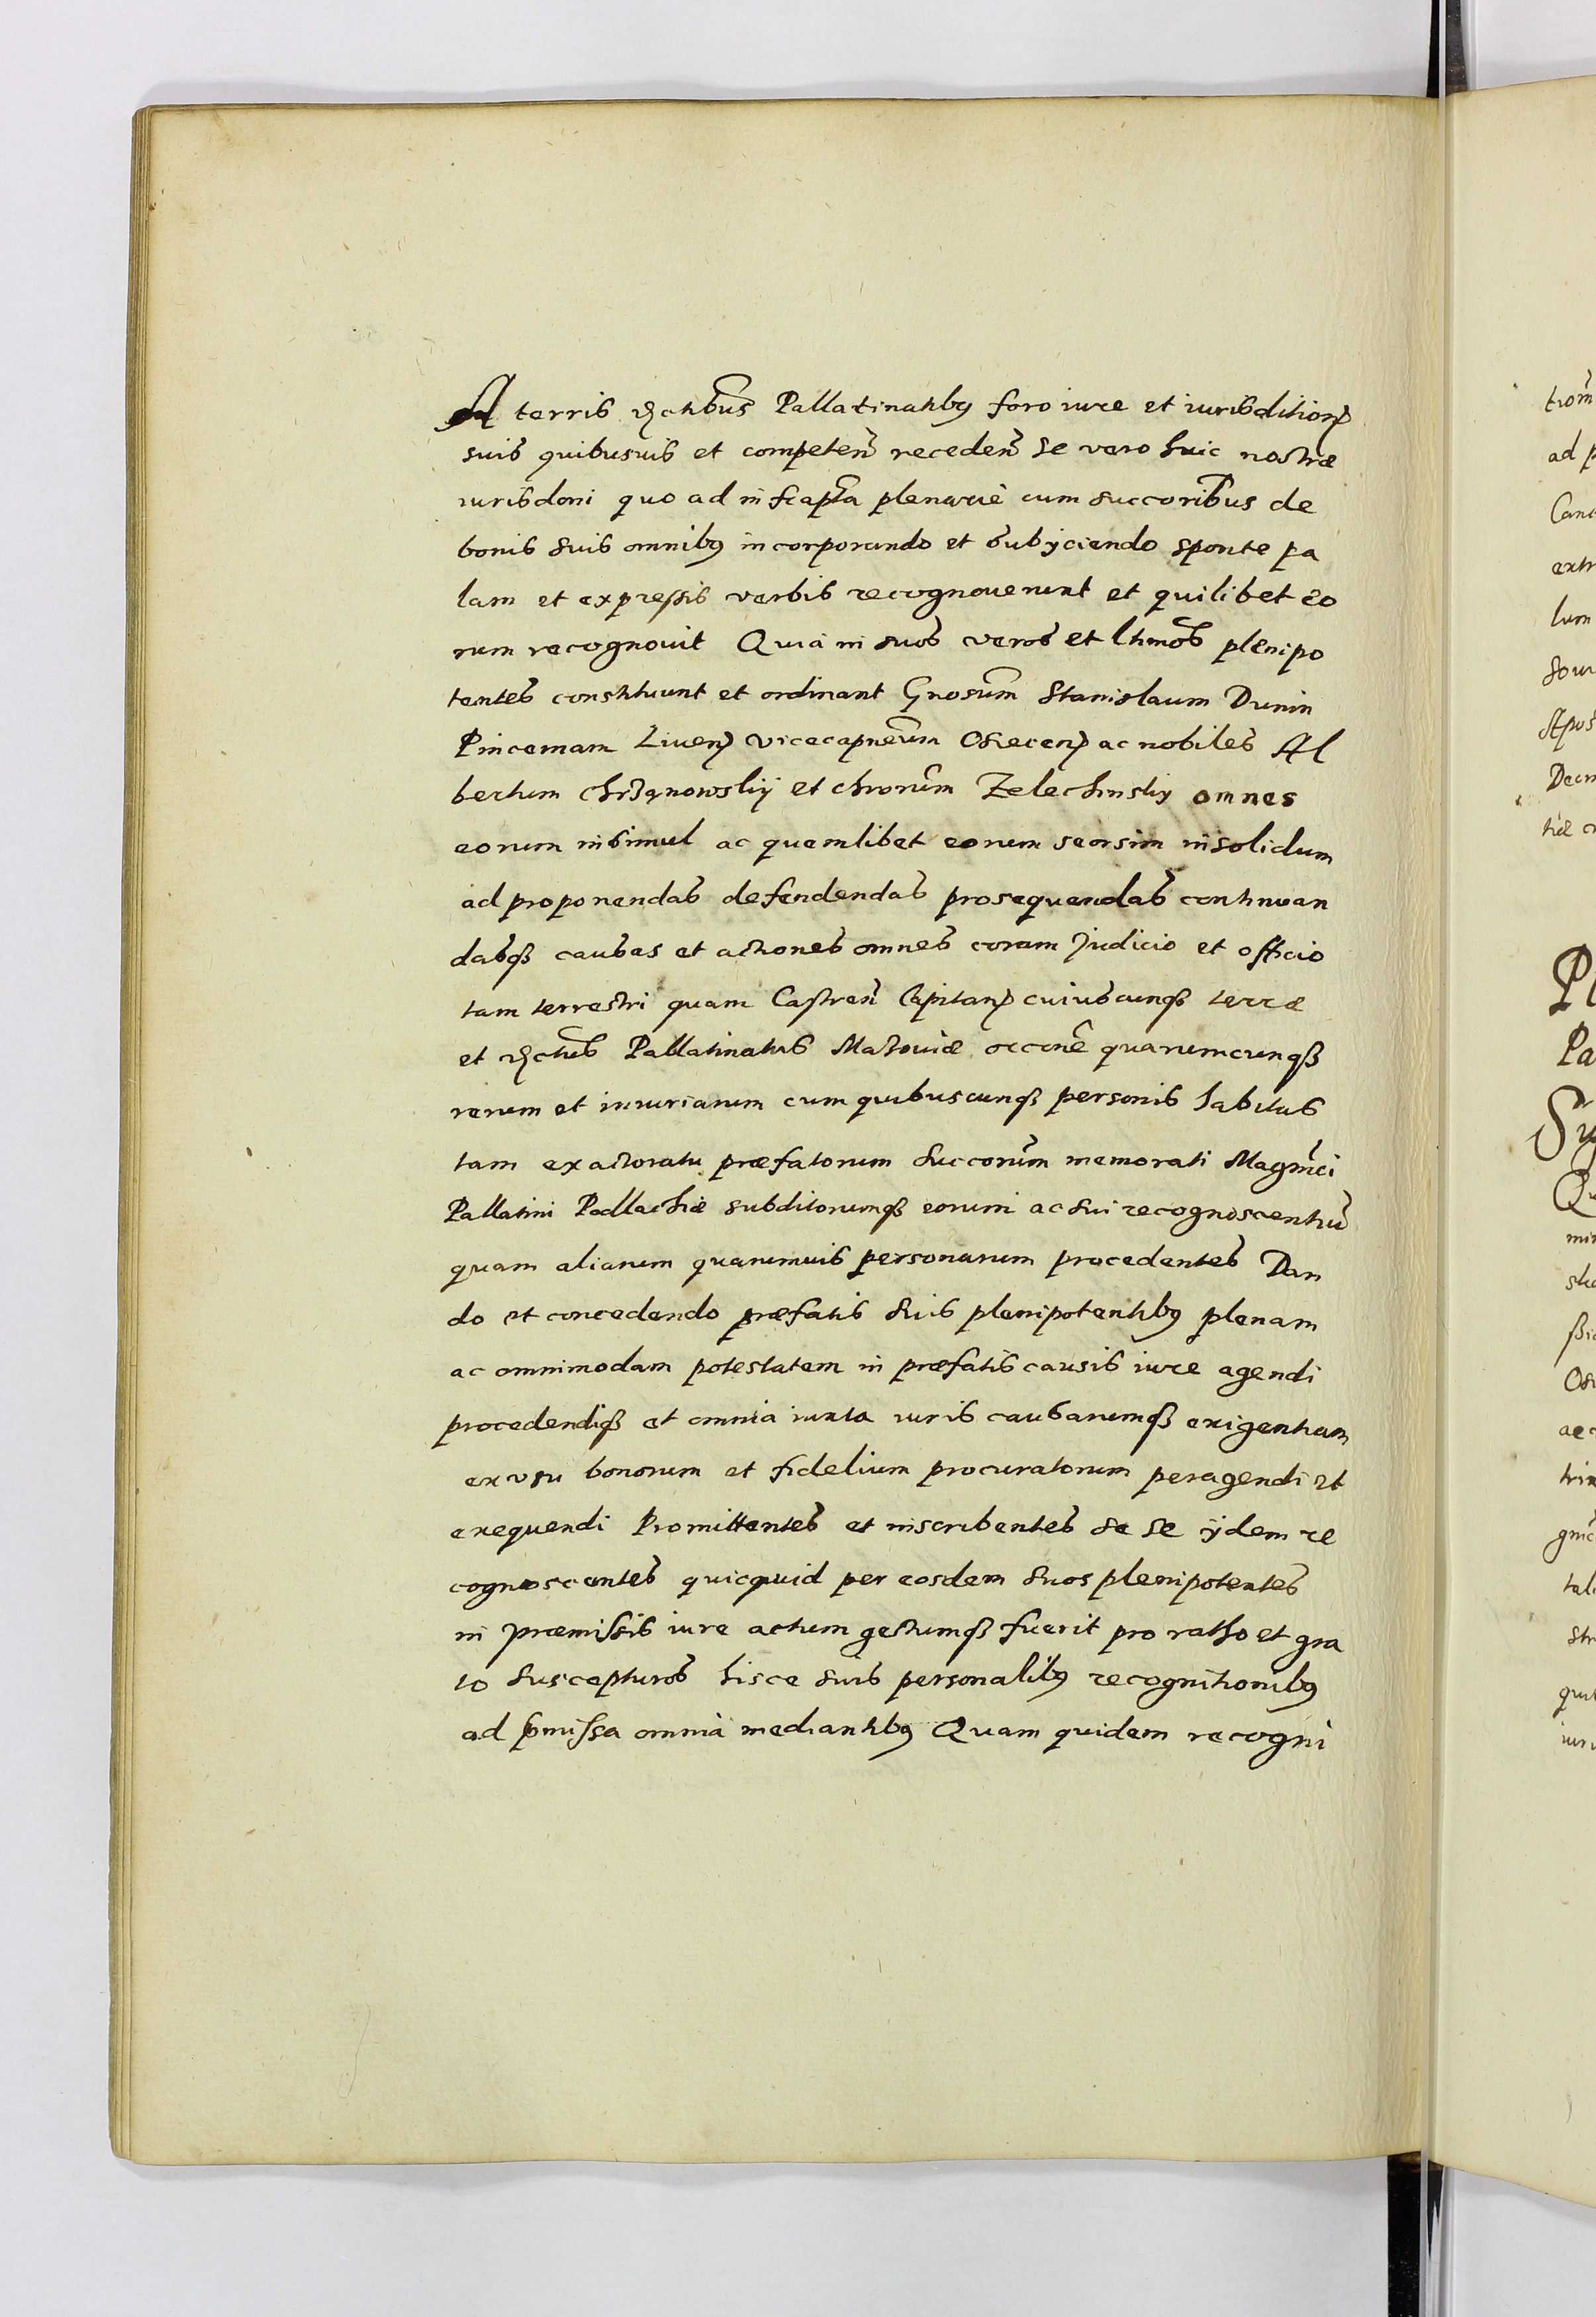 A terris districtibus Pallatinatibus foro iure et iurisdition
suis quibusuis et competen recedens se vero huic nostræ
iurisdoni quo ad infrapta plenariè cum succoribus de
bonis suis omnibus incorporando et subyciendo sponte pa
lam et expressis verbis recognouerunt et quilibet eo
rum recognouit Quia in suos veros et lhmos plenipo
tentes constituunt et ordinant Gnosum Stanislaum Dunin
Pincernam Liuen vicecapneum Osiecen ac nobiles Al
bertum et chronum Zelechinsky omnes
eorum insimul ac quemlibet eorum seorsim insolidum
ad proponendas defendendas prosequendas continuan
dasque causas et actiones omnes coram Judicio et officio
tam terrestri quam Castren Capitan cuiuscunque terræ
et Pallatinatus Masouiæ occone quarumcunque
rerum et iniuriarum cum quibuscunque personis habitus
tam exactoratu præfatorum succorum memorati Magnici
Pallatini Podlachiæ subditorumque eorum ac sui recognoscentiu
quam aliarum quarumuis personarum procedentes Dan
do et concedendo præfatis suis plenipotentibus plenam
ac omnimodam potestatem in præfatis causis iure agendi
procedendique et omnia iuxta iuris causarumque exigentiam
ex usu bonorum et fidelium procuratorum peragendi et
exequendi Promittentes et inscribentes se se ijdem re
cognoscentes quicquid per eosdem suos plenipotentes
in præmissis iure actum gestumque fuerit pro ratho et gra
to suscepturos hisce suis personalibus recognitionibus
ad pmissa omnia mediantibus Quam quidem recogni